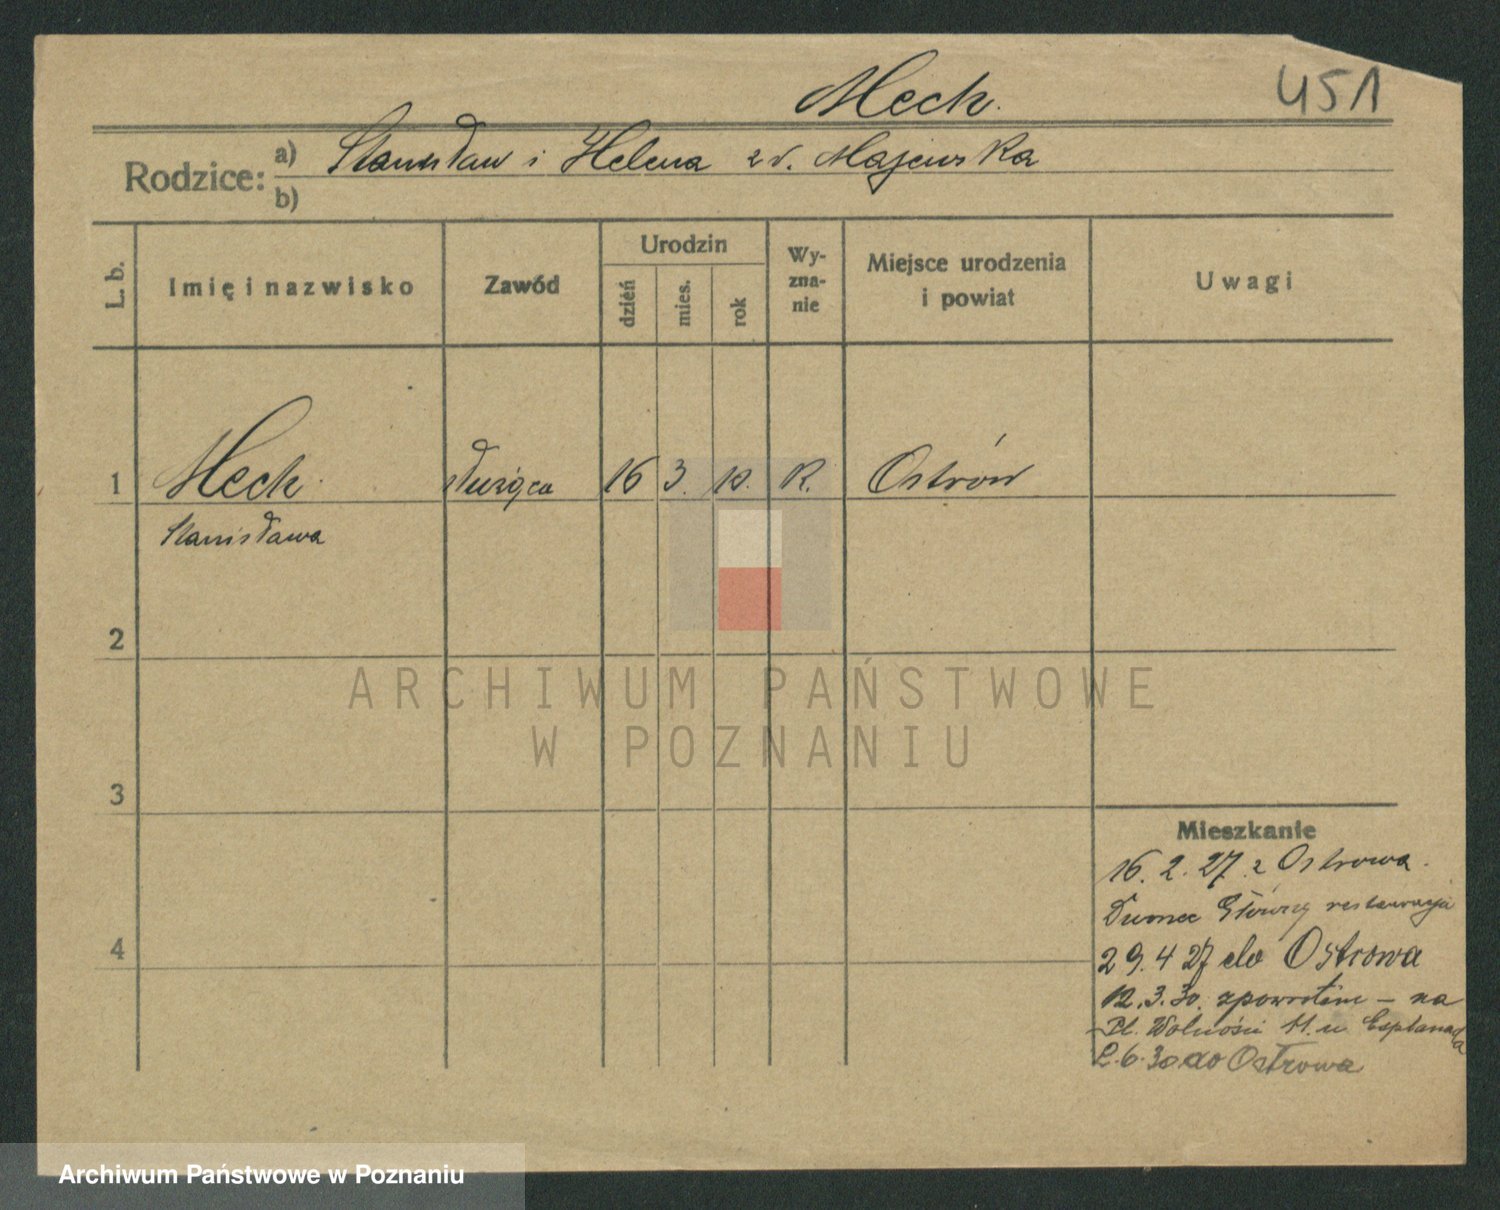 Mech.
451
Rodzice: a) Stanisław i Helena zd. Majewska
b)
L. b.
Imię i nazwisko
Zawód
Urodzin
dzień
mies.
rok
Wy-
zna-
nie
Miejsce urodzenia
i powiat
Uwagi
1 Mech służąca 16 3. R. Ostrów
Stanisława
2
ARCHIWUM PAŃSTWOWE
W POZNANIU
3
Mieszkanie
16. 2. 27. z Ostrowa.
Główny restauracja
4
29. 4 27 do Ostrowa
12. 3. 30. zpowrotem – na
Pl. Wolności 11. u Esplanada
2. 6. 30 do Ostrowa
Archiwum Państwowe w Poznaniu